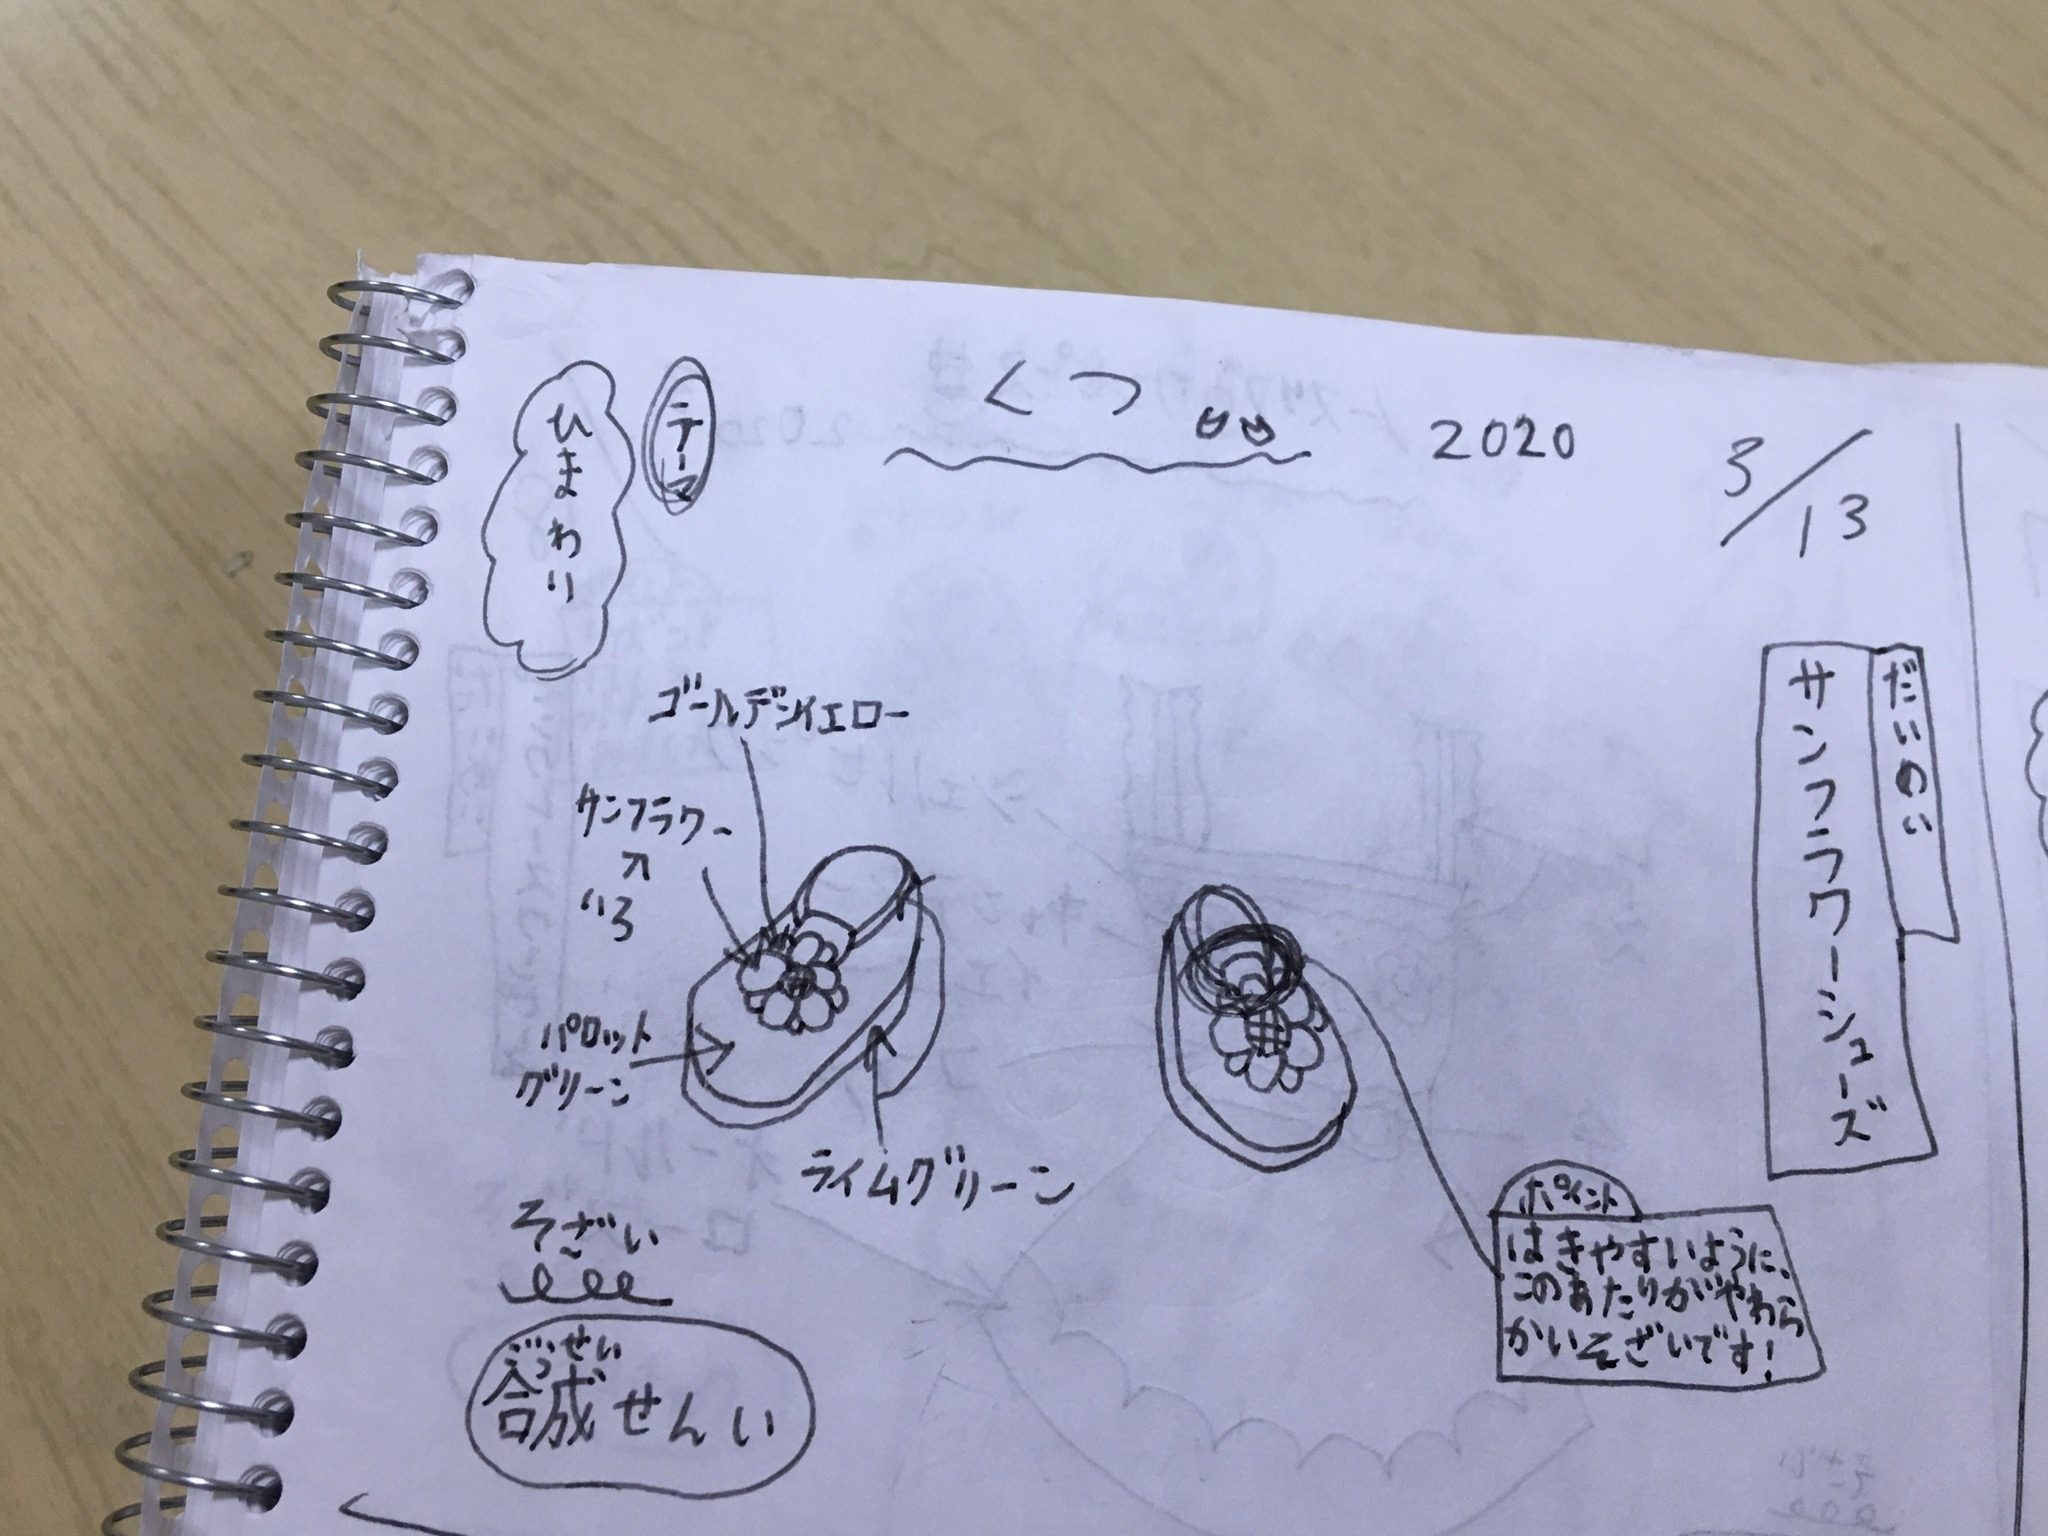 くつ
2020
3/13
テーマ
ひまわり
だいめい
サンフラワーシューズ
ゴールデンイエロー
サンフラワー
いろ
パロット
グリーン
ライムグリーン
ポイント
はきやすいように、
このあたりがやわら
かいそざいです!
そざい
ごうせい
合成せんい